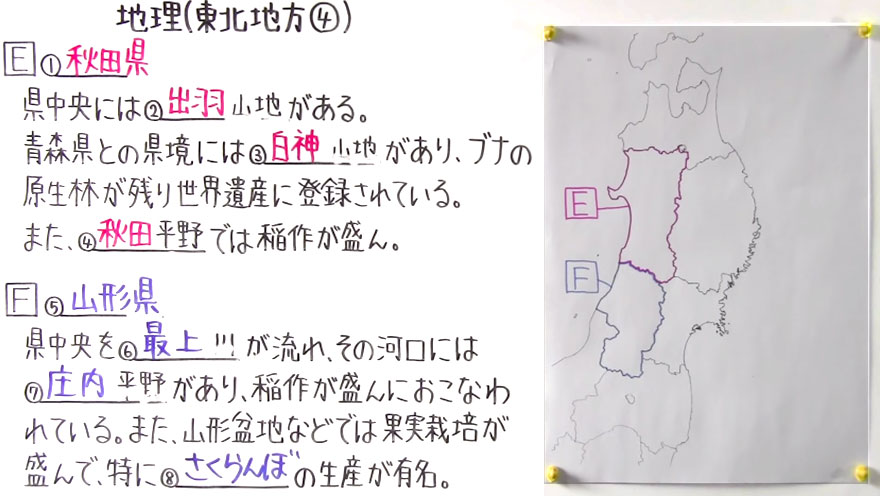 地理(東北地方④)
E ①秋田県
県中央には②出羽山地がある。
青森県との県境には③白神山地があり、ブナの
原生林が残り世界遺産に登録されている。
また、④秋田平野では稲作が盛ん。
F ⑤山形県
県中央を⑥最上川が流れ、その河口には
⑦庄内平野があり、稲作が盛んにおこなわ
れている。また、山形盆地などでは果実栽培が
盛んで、特に⑧さくらんぼの生産が有名。
E
F